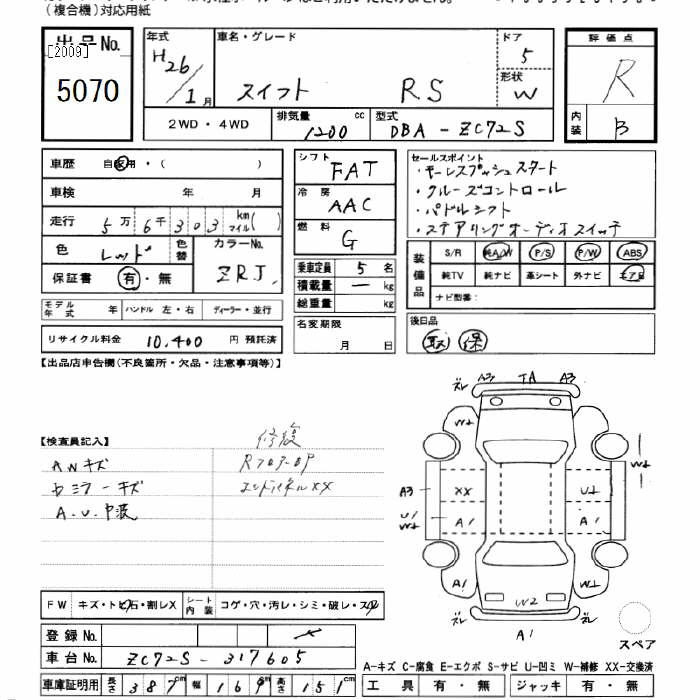 (複合機)対応用紙
出品No.
[2009]
5070
年式
H26/1月
車名・グレード
スイフト RS
ドア
5
形状
W
評価点
R
内装
B
2WD・4WD
排気量
1200 cc
型式
DBA-ZC72S
車歴 自家用・( )
車検 年 月
走行 5万6千303 km マイル( )
色 レッド 色替
カラーNo.
ZRJ
保証書 有・無
モデル年式 年 ハンドル 左・右 ディーラー・並行
リサイクル料金 10,400 円 預託済
シフト
FAT
冷房
AAC
燃料
G
乗車定員 5 名
積載量 ー kg
総重量 kg
名変期限
月 日
セールスポイント
・キーレスプッシュスタート
・クルーズコントロール
・パドルシフト
・ステアリングオーディオスイッチ
装備品
S/R 純A/W P/S P/W ABS
純TV 純ナビ 革シート 外ナビ エアB
ナビ型番:
後日品
取 保
【出品店申告欄(不良箇所・欠品・注意事項等)】
【検査員記入】
修復
AWキズ
カミラーキズ
A.U.中波
エンドパネルXX
FW キズ・トビ石・割レX
シート内装 コゲ・穴・汚レ・シミ・破レ・スレ
登録No.
車台No. ZC72S-317605
車庫証明用 長さ 387cm 幅 169cm 高さ 151cm
ズレ A3 TA A3 ズレ
W2
W2
A3 XX U2
U1 W2 A1 A1
A1 W2 W2
ズレ A1 ズレ
スペア
A-キズ C-腐食 E-エクボ S-サビ U-凹ミ W-補修 XX-交換済
工具 有・無 ジャッキ 有・無